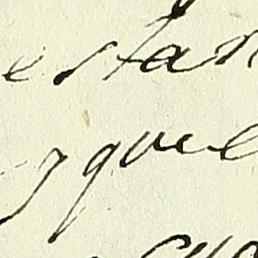 estan
y que